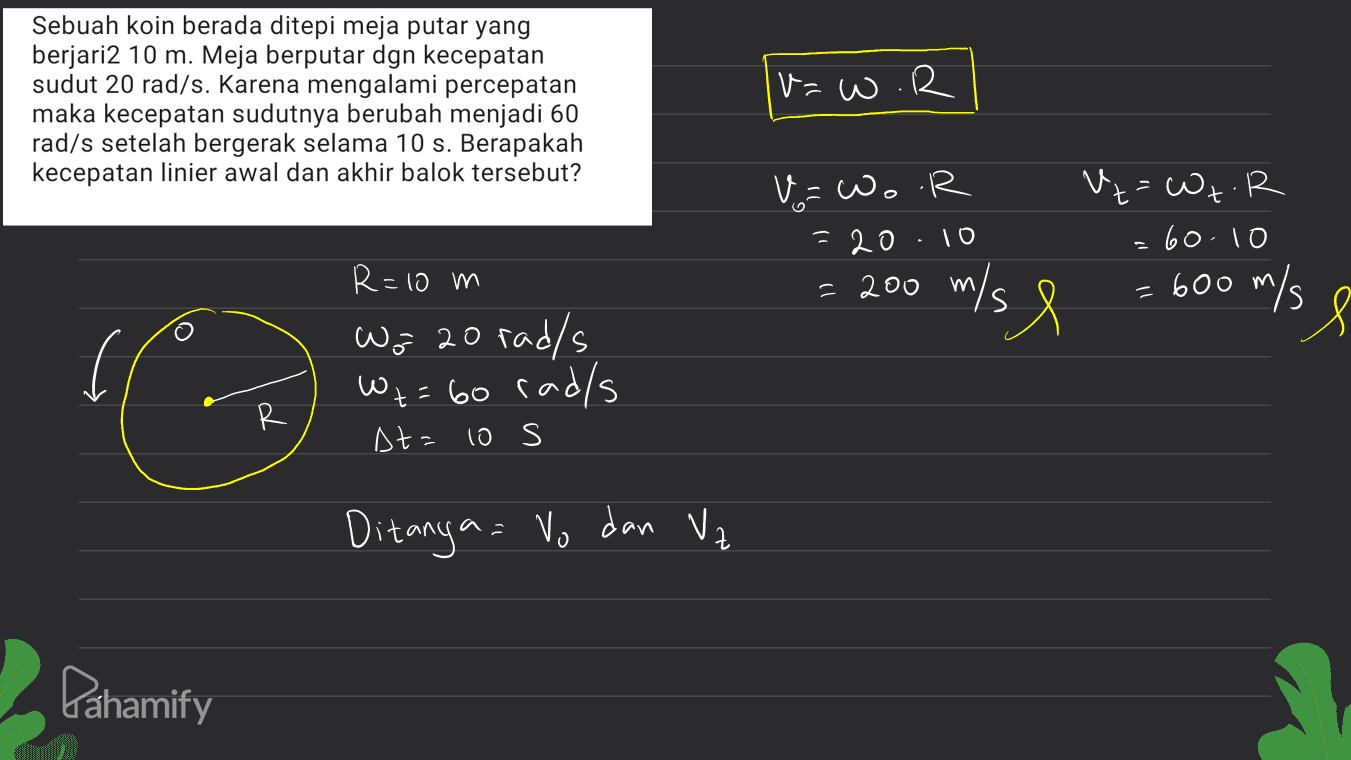 Sebuah koin berada ditepi meja putar yang
berjari2 10 m. Meja berputar dgn kecepatan
sudut 20 rad/s. Karena mengalami percepatan
maka kecepatan sudutnya berubah menjadi 60
rad/s setelah bergerak selama 10 s. Berapakah
kecepatan linier awal dan akhir balok tersebut?
V = ω . R
V₀ = ω₀ . R
= 20 . 10
= 200 m/s
Vt = ωt . R
= 60 . 10
= 600 m/s
R
R = 10 m
ω₀ = 20 rad/s
ωt = 60 rad/s
Δt = 10 s
Ditanya = V₀ dan Vt
Pahamify